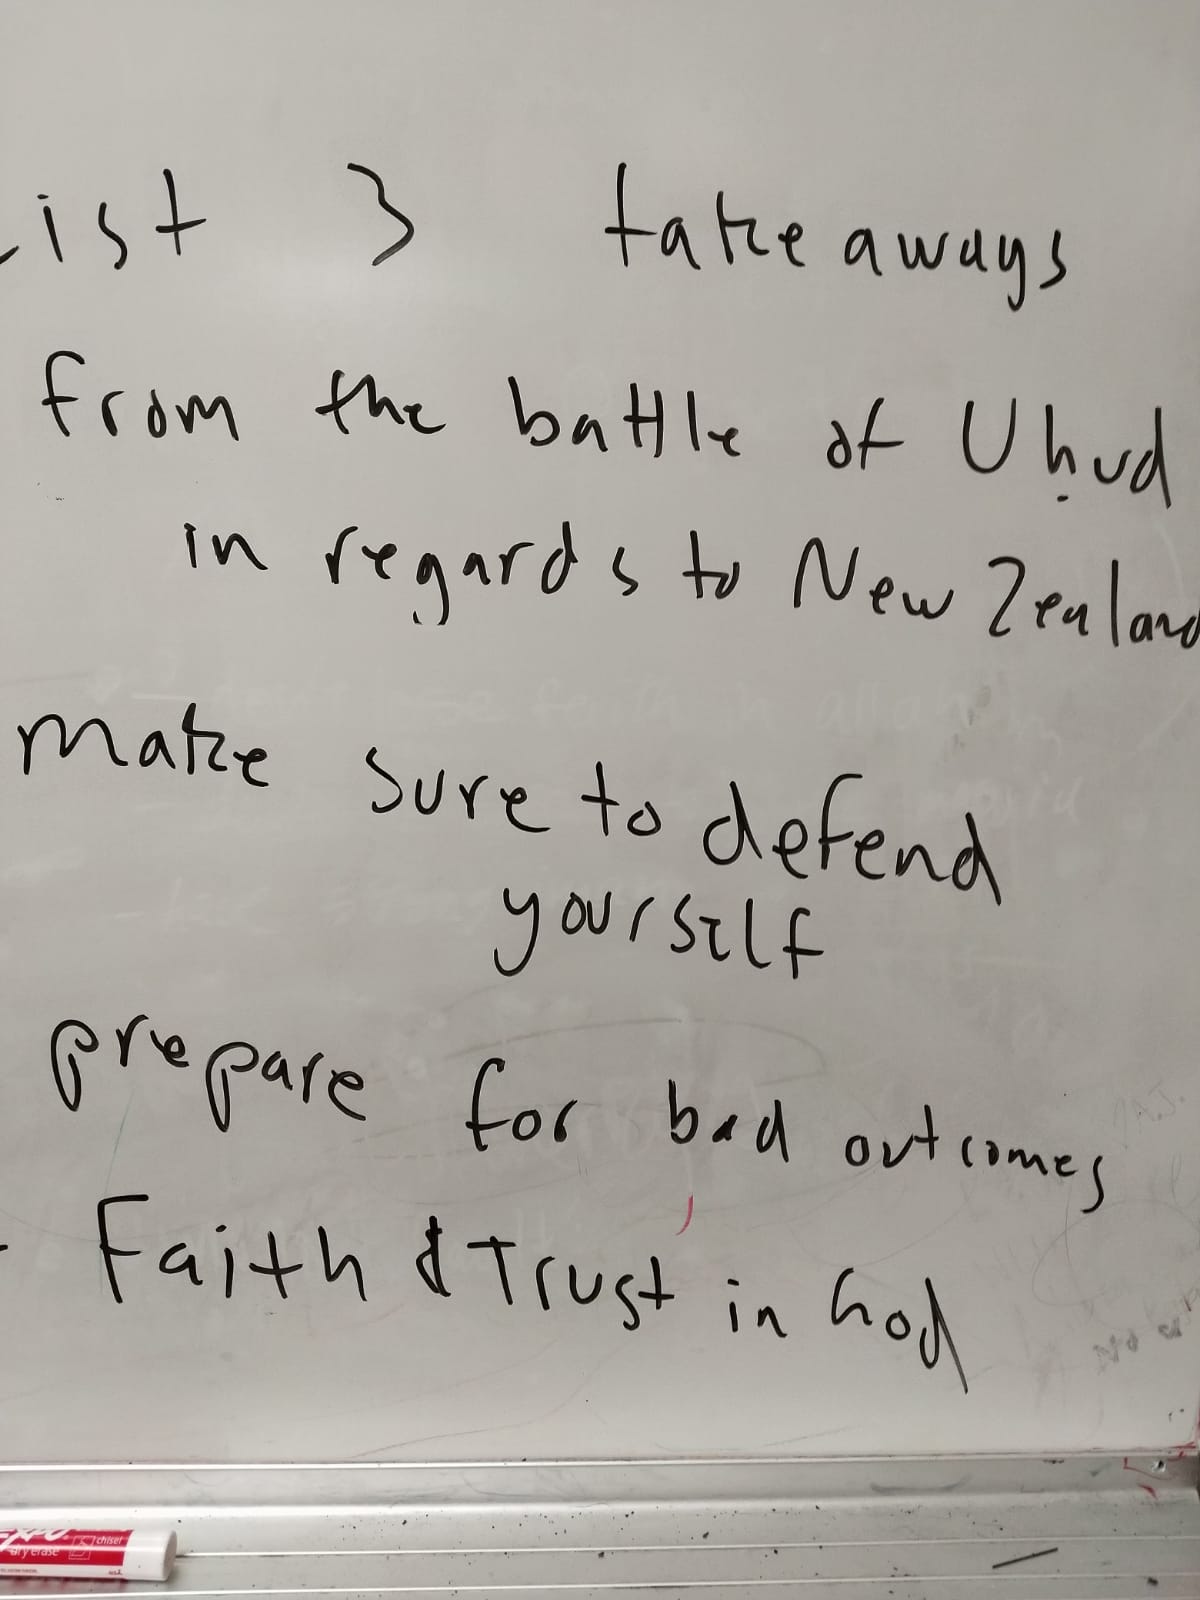 List 3 takeaways
from the battle of Uḥud
in regards to New Zealand
make sure to defend
yourself
prepare for bad outcomes
- Faith & Trust in God
EXPO
chisel
dry erase